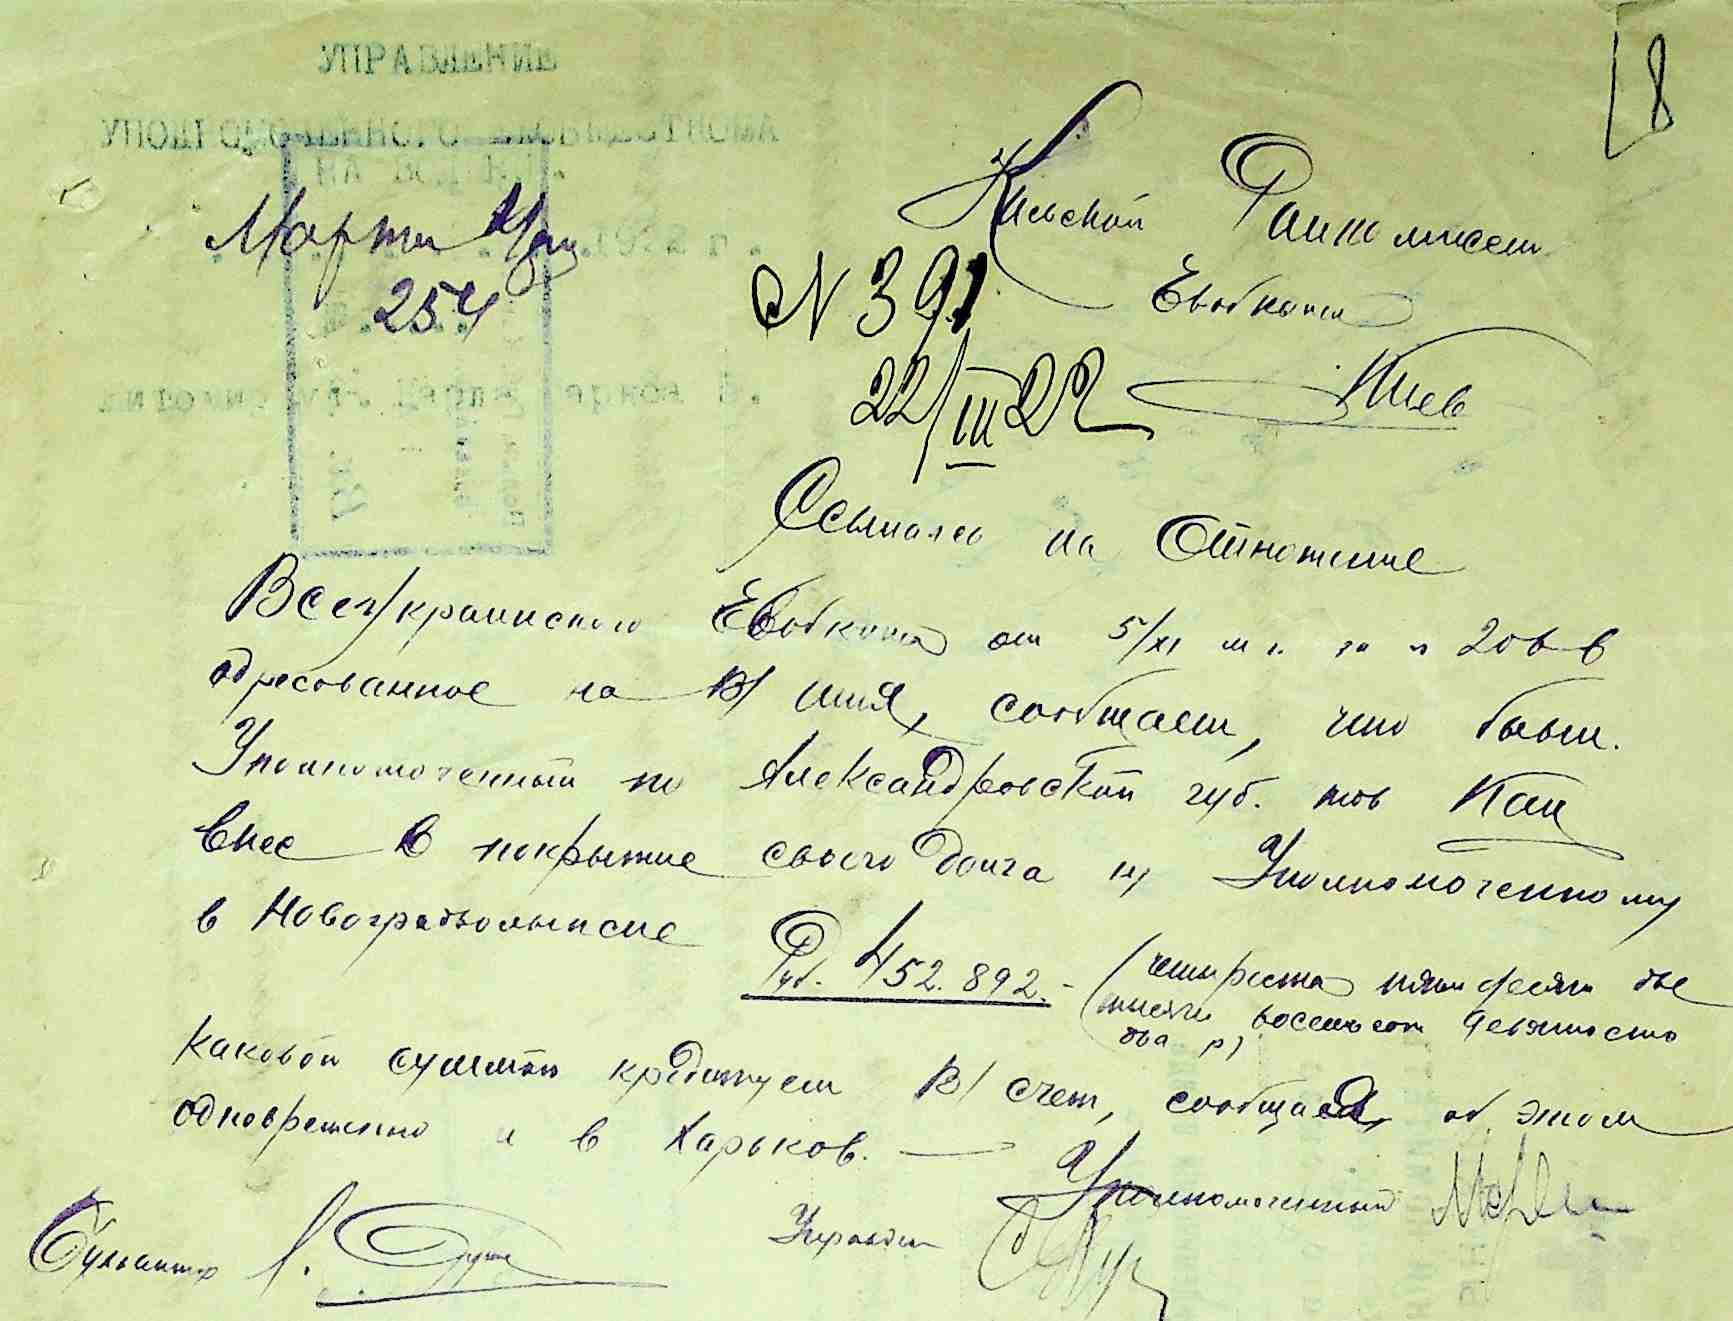 8
УПРАВЛЕНИЕ
НА
Марта
254
Киевской
Евобкома
N 391
22/III 22
Киев
Ссылаясь на Отношение
Всеукраинского Евобкома от 5/XI м г. за № 206 в
адресованное на В/ имя, сообщаем, что бывш.
Уполномоченный по Александровской губ. тов Кац
внес в покрытие своего долга Уполномоченному
в Новоградволынске
Руб. 452.892.- (четыреста пятьдесят две
тысячи восемьсот девяносто
два р)
каковой суммой кредитуем В/ счет, сообщая об этом
одновременно и в Харьков. —
Уполномоченный
Бухгалтер
Управдел